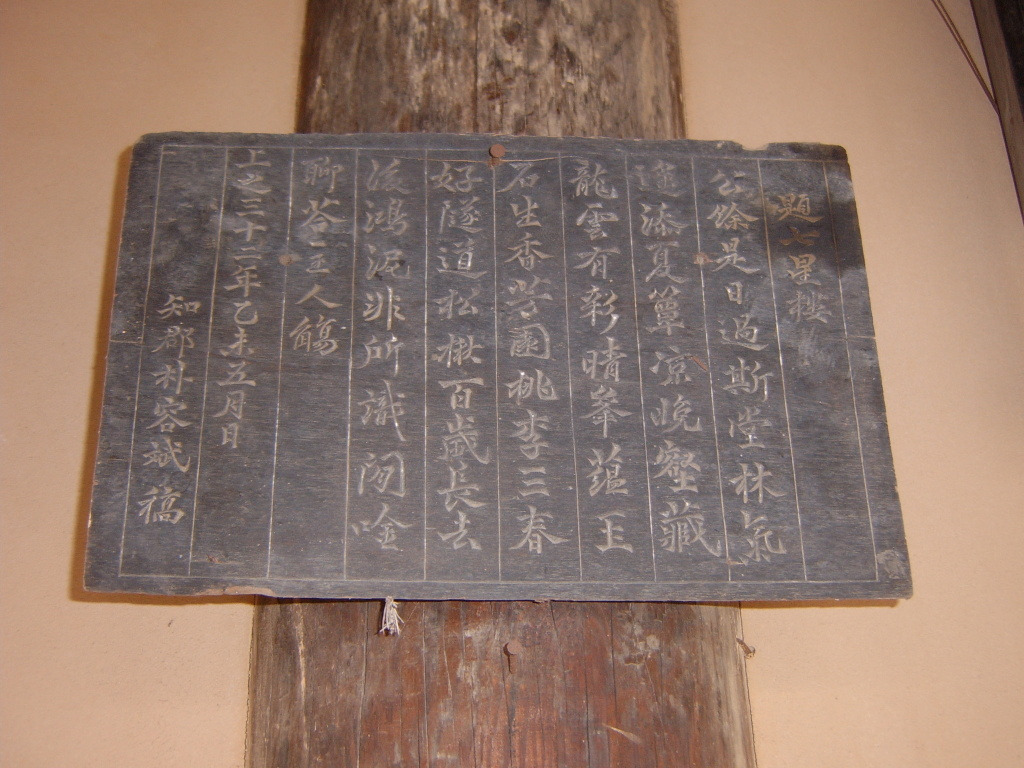 題七星樓
公餘是日過斯堂林氣
漆夏簟凉晚壑藏
龍雲有彩晴峯蘊玉
石生香芳園桃李三春
好隧道松楸百歲長去
後鴻泥非所識閑唫
聊答主人觴
上之三十二年乙未五月日
知郡朴容斌稿